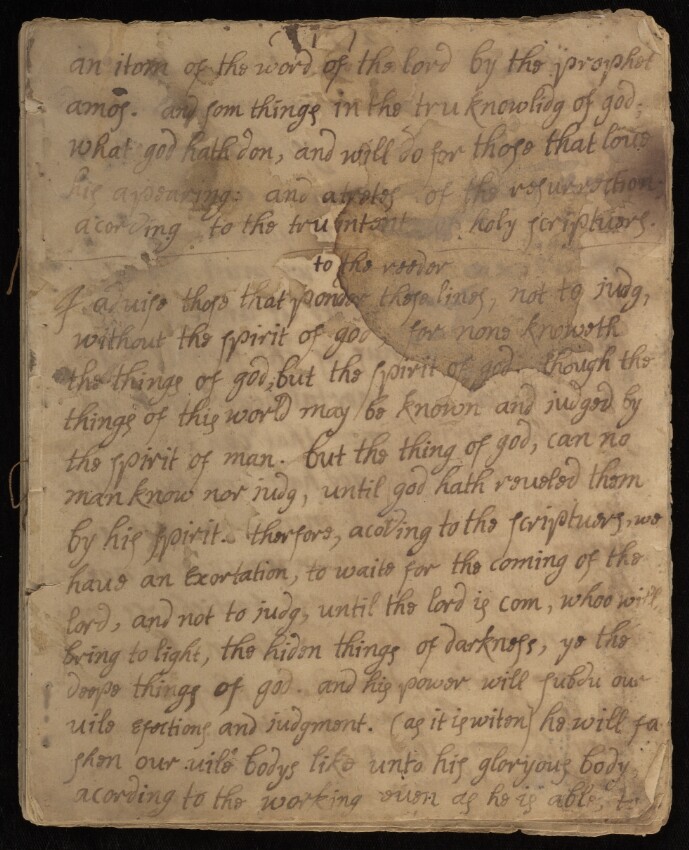 ( 1 )
an itom of the word of the lord by the prophet
amos. and som things in the tru knowlidg of god;
what god hath don, and will do for those that loue
his apearing: and atretes of the resurrection
acording to the tru intent holy scriptuers.
to the reeder
I aduise those that ponder these lines, not to judg,
without the spirit of god for none knoweth
the things of god, but the spirit of god. though the
things of this world may be known and judged by
the spirit of man. but the thing of god, can no
man know nor judg, until god hath reueled them
by his spirit. therfore, acoding to the scriptuers, we
haue an Exortation, to waite for the coming of the
lord, and not to judg, until the lord is com, whoo will
bring to light, the hiden things of darkness, ye the
deepe things of god. and his power will subdu our
uile efections and judgment. (as it is witen) he will fa
shen our uile bodys like unto his gloryous body,
acording to the working euen as he is able, to